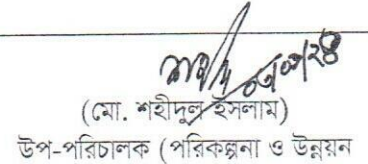 (মো. শহীদুল ইসলাম)
উপ-পরিচালক (পরিকল্পনা ও উন্নয়ন